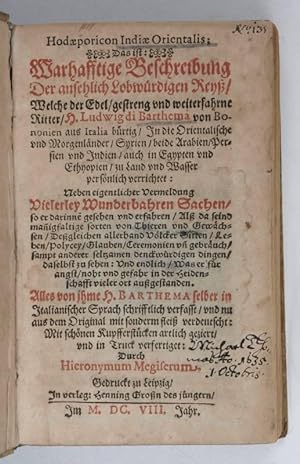 Hodæporicon Indiæ Orientalis;
Das ist:
Warhafftige Beschreibung
Der ansehlich Lobwürdigen Reyß/
Welche der Edel/ gestreng vnd weiterfahrne
Ritter/ H. Ludwig di Barthema von Bo-
nonien aus Italia bürtig/ In die Orientalische
vnd Morgenländer/ Syrien/ beide Arabien/ Per-
sien vnd Indien/ auch in Egypten vnd
Ethyopien/ zu Land vnd Wasser
persönlich verrichtet:
Neben eigentlicher Vermeldung
Vielerley Wunderbahren Sachen/
so er darinnē gesehen vnd erfahren/ Alß da seind
manigfaltige sorten von Thieren vnd Gewäch-
sen/ Deßgleichen allerhand Völcker Sitten/ Le-
ben/ Polycey/ Glauben/ Ceremonien vñ gebräuch/
sampt anderer seltzamen denckwürdigen dingen/
daselbst zu sehen: Vnd endlich/ Was er für
angst/ noht vnd gefahr in der Heiden-
schafft vieler ort außgestanden.
Alles von ihme H. BARTHEMA selber in
Italianischer Sprach schrifftlich verfasst/ vnd nu
aus dem Original mit sonderm fleiß verdeutscht:
Mit schönen Kupfferstücken artlich geziert
vnd in Truck verfertiget:
Durch
Hieronymum Megiserum.
Gedruckt zu Leipzig/
1. Octobris.
In verleg: Henning Großn des jüngern/
Im M. DC. VIII. Jahr.